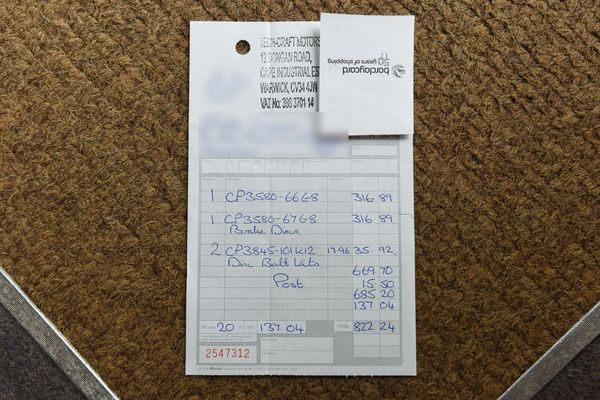 TECH-CRAFT MOTORS
12 DONGAN ROAD,
CAPE INDUSTRIAL ES
WARWICK, CV34 4JW
VAT No: 398 3701 14
barclaycard
50 years of shopping
1 CP3580-66G8 316 89
1 CP3580-67G8 316 89
Brake Discs
2 CP3845-101K12 17.96 35.92
Disc Bolt Kits
669.70
Post 15.50
685 20
137 04
VAT 20 % VAT 137 04 TOTAL 822 24
2547312